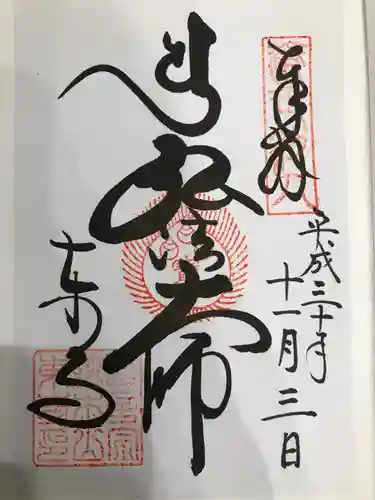 奉拝
平成三十年
十一月三日
弘法大師
東寺